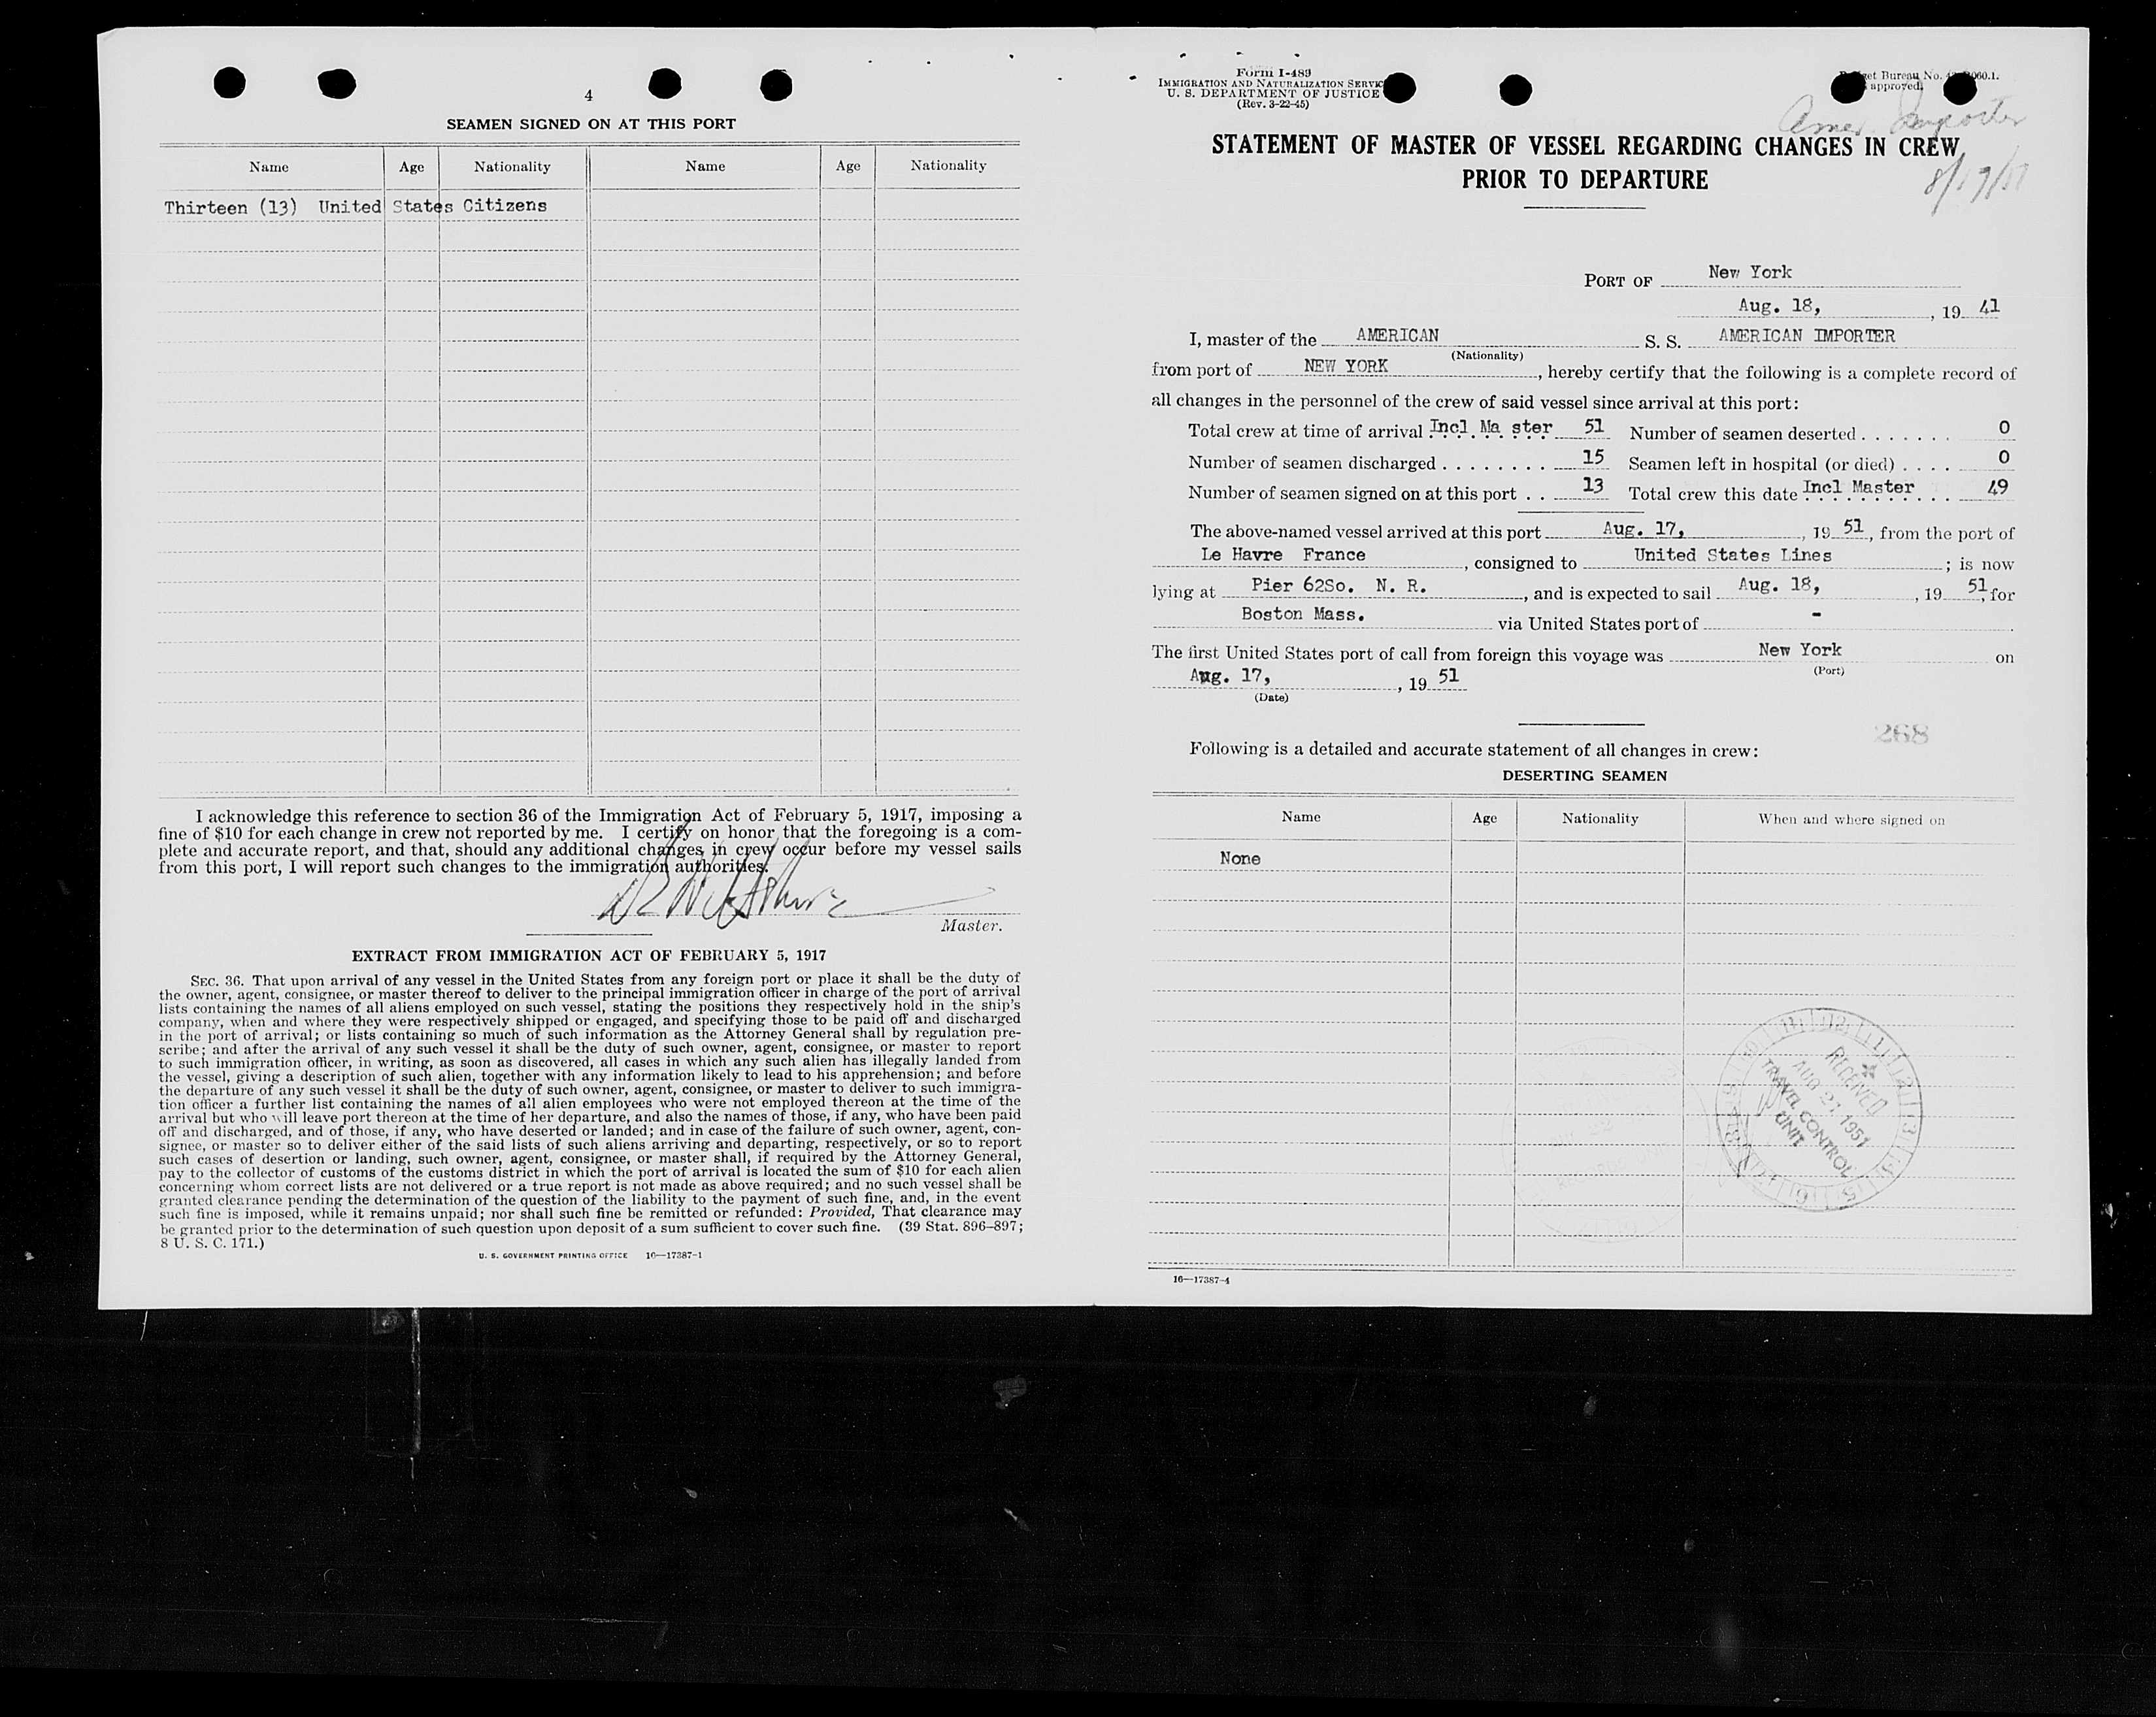 4
SEAMEN SIGNED ON AT THIS PORT
Name Age Nationality Name Age Nationality
Thirteen (13) United States Citizens
I acknowledge this reference to section 36 of the Immigration Act of February 5, 1917, imposing a
fine of $10 for each change in crew not reported by me. I certify on honor that the foregoing is a com-
plete and accurate report, and that, should any additional changes in crew occur before my vessel sails
from this port, I will report such changes to the immigration authorities.
Master.
EXTRACT FROM IMMIGRATION ACT OF FEBRUARY 5, 1917
SEC. 36. That upon arrival of any vessel in the United States from any foreign port or place it shall be the duty of
the owner, agent, consignee, or master thereof to deliver to the principal immigration officer in charge of the port of arrival
lists containing the names of all aliens employed on such vessel, stating the positions they respectively hold in the ship's
company, when and where they were respectively shipped or engaged, and specifying those to be paid off and discharged
in the port of arrival; or lists containing so much of such information as the Attorney General shall by regulation pre-
scribe; and after the arrival of any such vessel it shall be the duty of such owner, agent, consignee, or master to report
to such immigration officer, in writing, as soon as discovered, all cases in which any such alien has illegally landed from
the vessel, giving a description of such alien, together with any information likely to lead to his apprehension; and before
the departure of any such vessel it shall be the duty of such owner, agent, consignee, or master to deliver to such immigra-
tion officer a further list containing the names of all alien employees who were not employed thereon at the time of the
arrival but who will leave port thereon at the time of her departure, and also the names of those, if any, who have been paid
off and discharged, and of those, if any, who have deserted or landed; and in case of the failure of such owner, agent, con-
signee, or master so to deliver either of the said lists of such aliens arriving and departing, respectively, or so to report
such cases of desertion or landing, such owner, agent, consignee, or master shall, if required by the Attorney General,
pay to the collector of customs of the customs district in which the port of arrival is located the sum of $10 for each alien
concerning whom correct lists are not delivered or a true report is not made as above required; and no such vessel shall be
granted clearance pending the determination of the question of the liability to the payment of such fine, and, in the event
such fine is imposed, while it remains unpaid; nor shall such fine be remitted or refunded: Provided, That clearance may
be granted prior to the determination of such question upon deposit of a sum sufficient to cover such fine. (39 Stat. 896-897;
8 U. S. C. 171.)
U. S. GOVERNMENT PRINTING OFFICE 16—17387-1
Form I-489
IMMIGRATION AND NATURALIZATION SERVIC
U. S. DEPARTMENT OF JUSTICE
(Rev. 3-22-45)
et Bureau No. 060.1.
approved.
Amer. Importer
8/17/51
STATEMENT OF MASTER OF VESSEL REGARDING CHANGES IN CREW
PRIOR TO DEPARTURE
PORT OF New York
Aug. 18, , 19 41
I, master of the AMERICAN S. S. AMERICAN IMPORTER
(Nationality)
from port of NEW YORK , hereby certify that the following is a complete record of
all changes in the personnel of the crew of said vessel since arrival at this port:
Total crew at time of arrival Incl. Ma ster 51 Number of seamen deserted . . . . . . . 0
Number of seamen discharged . . . . . . . . 15 Seamen left in hospital (or died) . . . . 0
Number of seamen signed on at this port . . 13 Total crew this date Incl Master . . . 49
The above-named vessel arrived at this port Aug. 17, , 19 51, from the port of
Le Havre France , consigned to United States Lines ; is now
lying at Pier 62So. N. R. , and is expected to sail Aug. 18, , 19 51, for
Boston Mass. via United States port of -
The first United States port of call from foreign this voyage was New York on
(Port)
Aug. 17, , 19 51
(Date)
268
Following is a detailed and accurate statement of all changes in crew:
DESERTING SEAMEN
Name Age Nationality When and where signed on
None
RECEIVED
AUG 27 1951
TRAVEL CONTROL
UNIT
16—17387-4